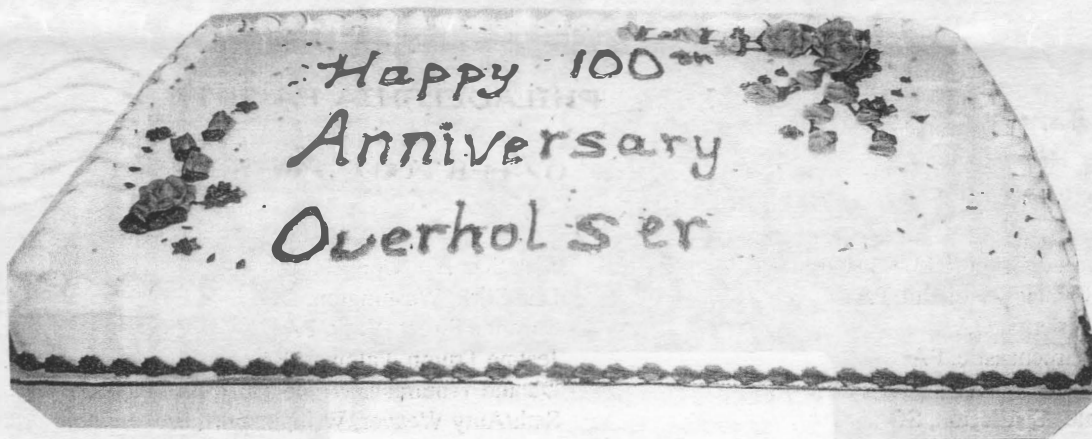 Happy 100th
Anniversary
Overholser